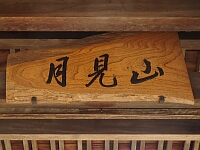 月見山